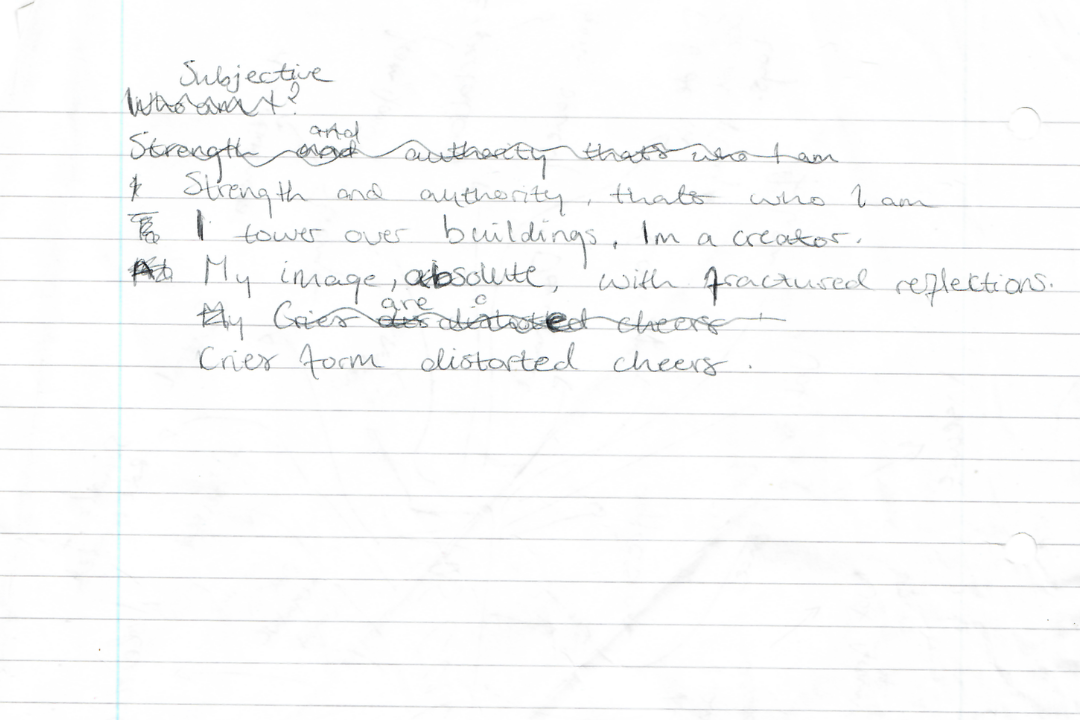 Subjective
Who am I?
and
Strength and authority thats who I am
Strength and authority, thats who I am
I tower over buildings, Im a creator.
My image, absolute, with fractured reflections.
are
My Cries distorted cheers
Cries form distorted cheers.